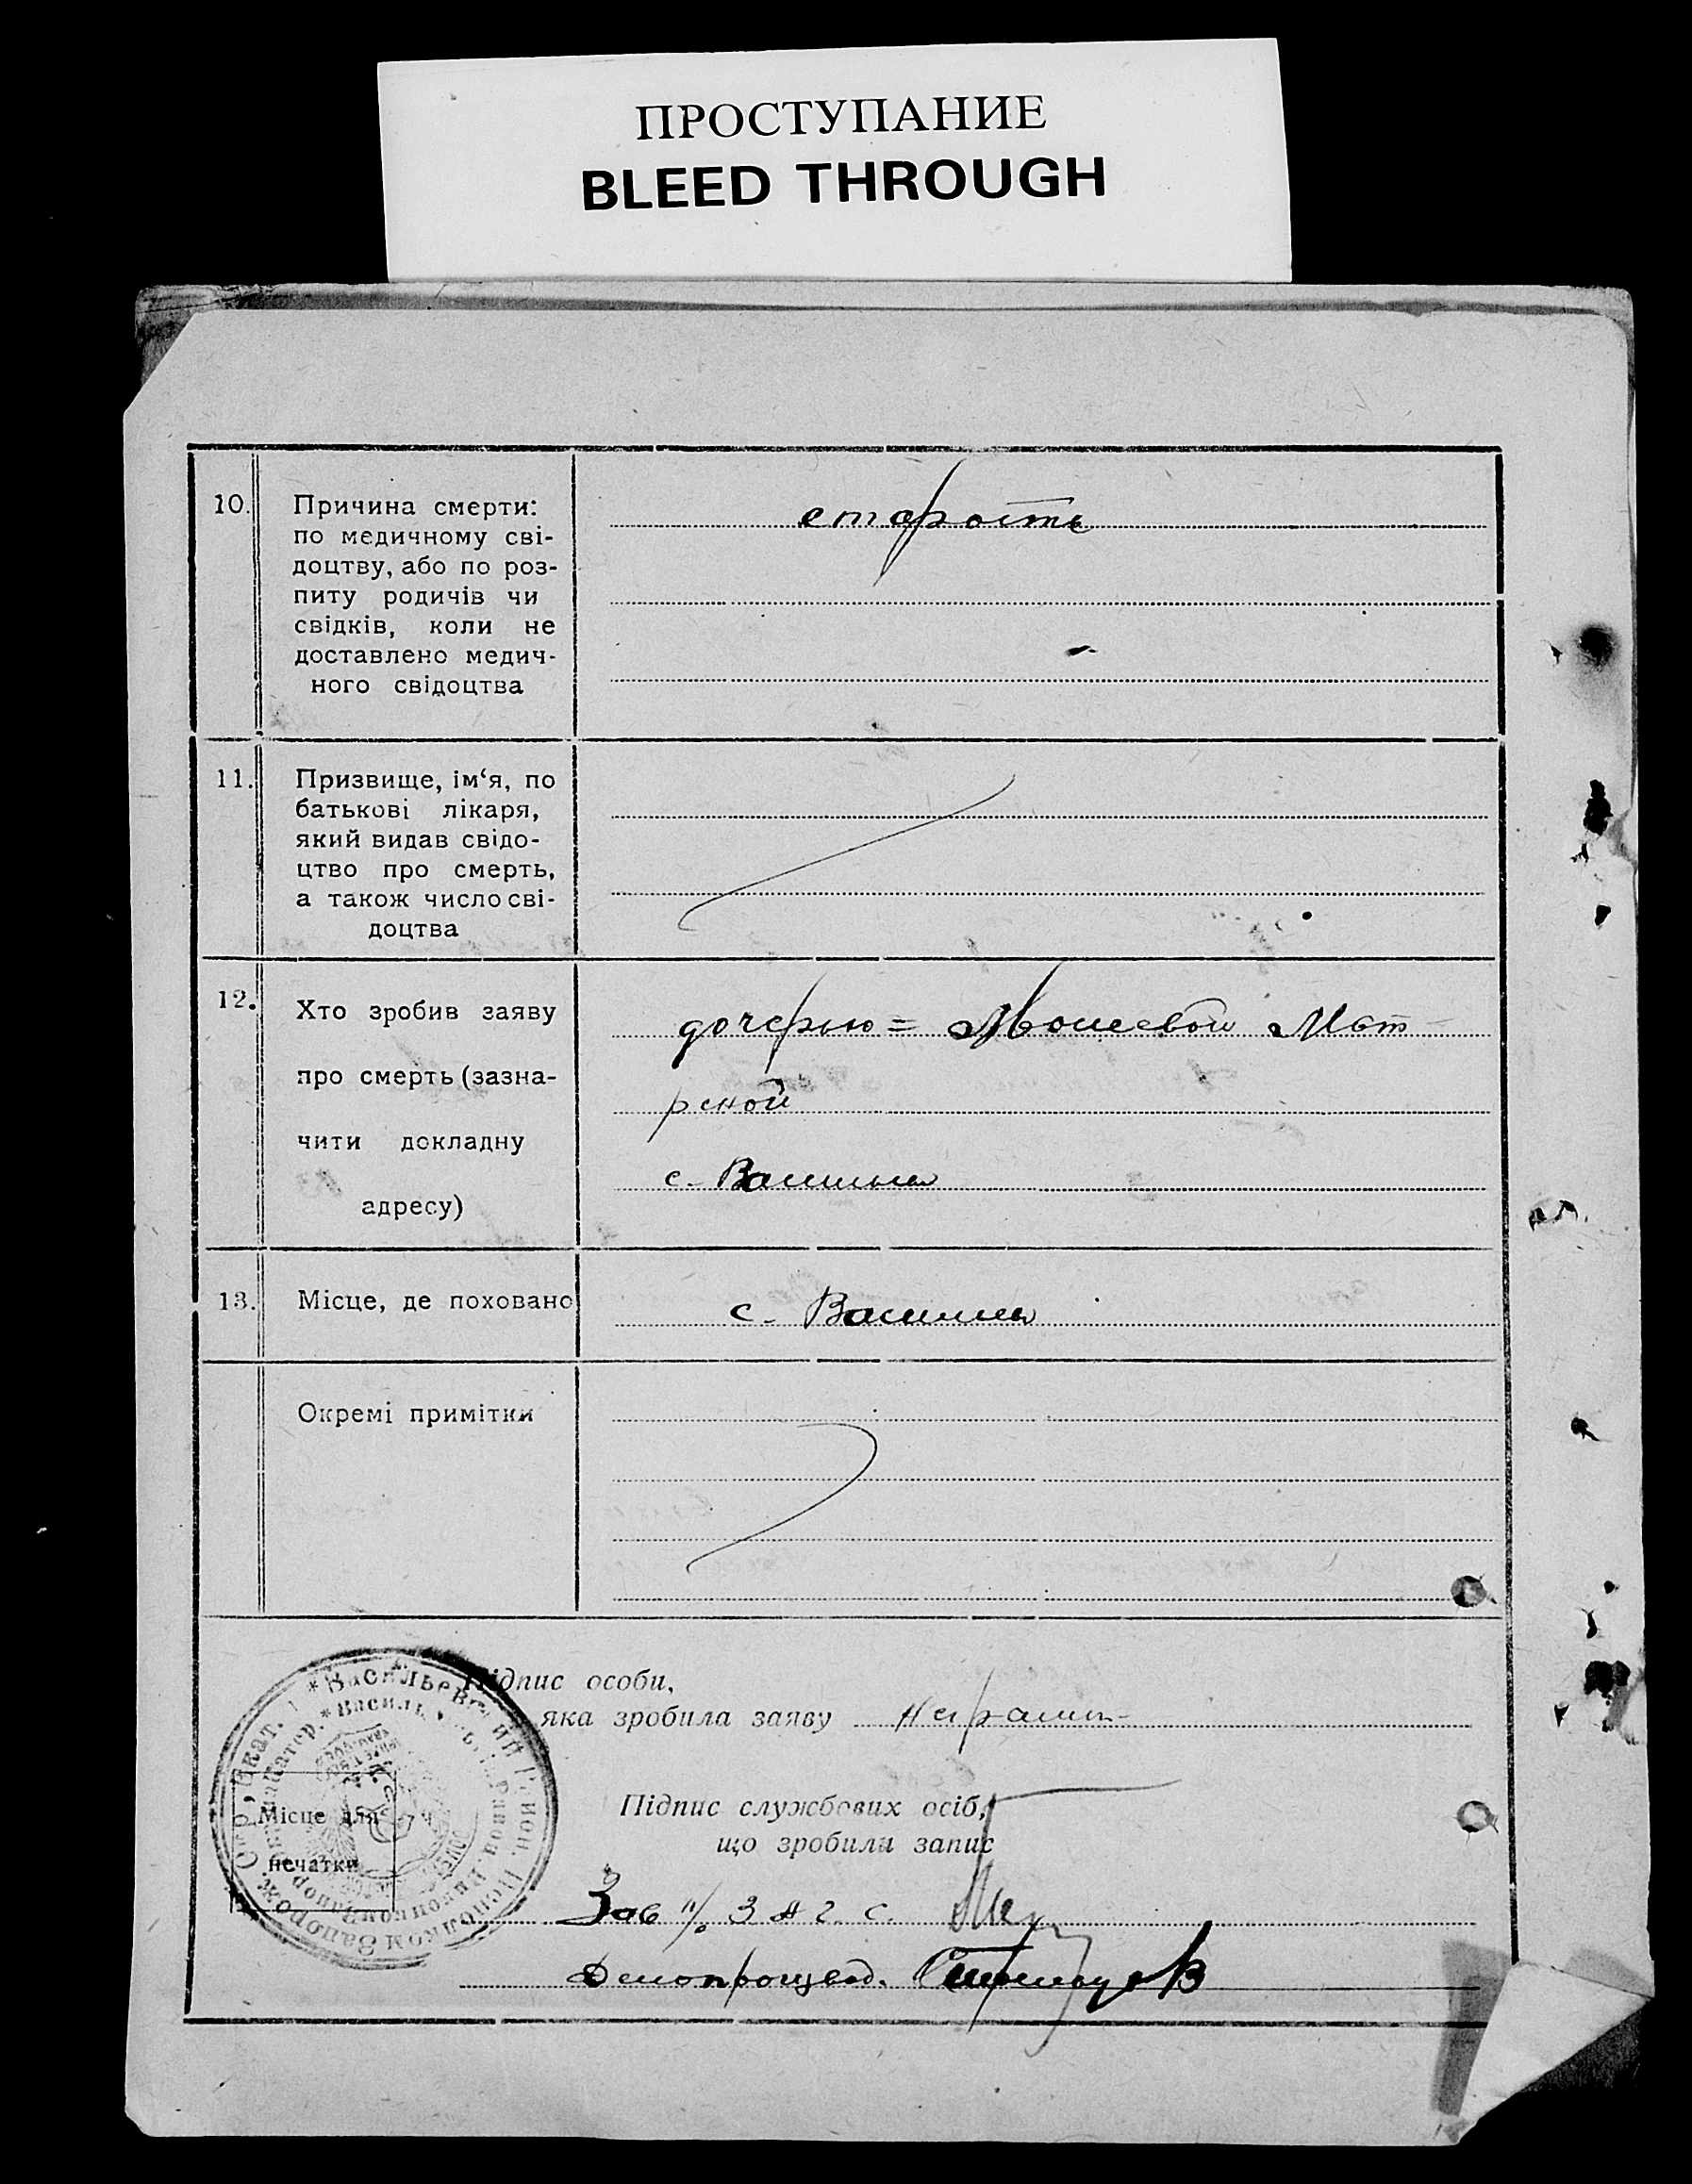 ПРОСТУПАНИЕ
BLEED THROUGH
10.
Причина смерти:
по медичному сві-
доцтву, або по роз-
питу родичів чи
свідків, коли не
доставлено медич-
ного свідоцтва
старость
11.
Призвище, ім‘я, по
батькові лікаря,
який видав свідо-
цтво про смерть,
а також число сві-
доцтва
12.
Хто зробив заяву
про смерть (зазна-
чити докладну
адресу)
дочерью = Мат-
рсной
с.
13.
Місце, де поховано
с.
Окремі примітки
Підпис особи,
яка зробила заяву
Місце для
печатки
Підпис службових осіб,
що зробили запис
Зав п/о З А г. с.
Делопроизвод.